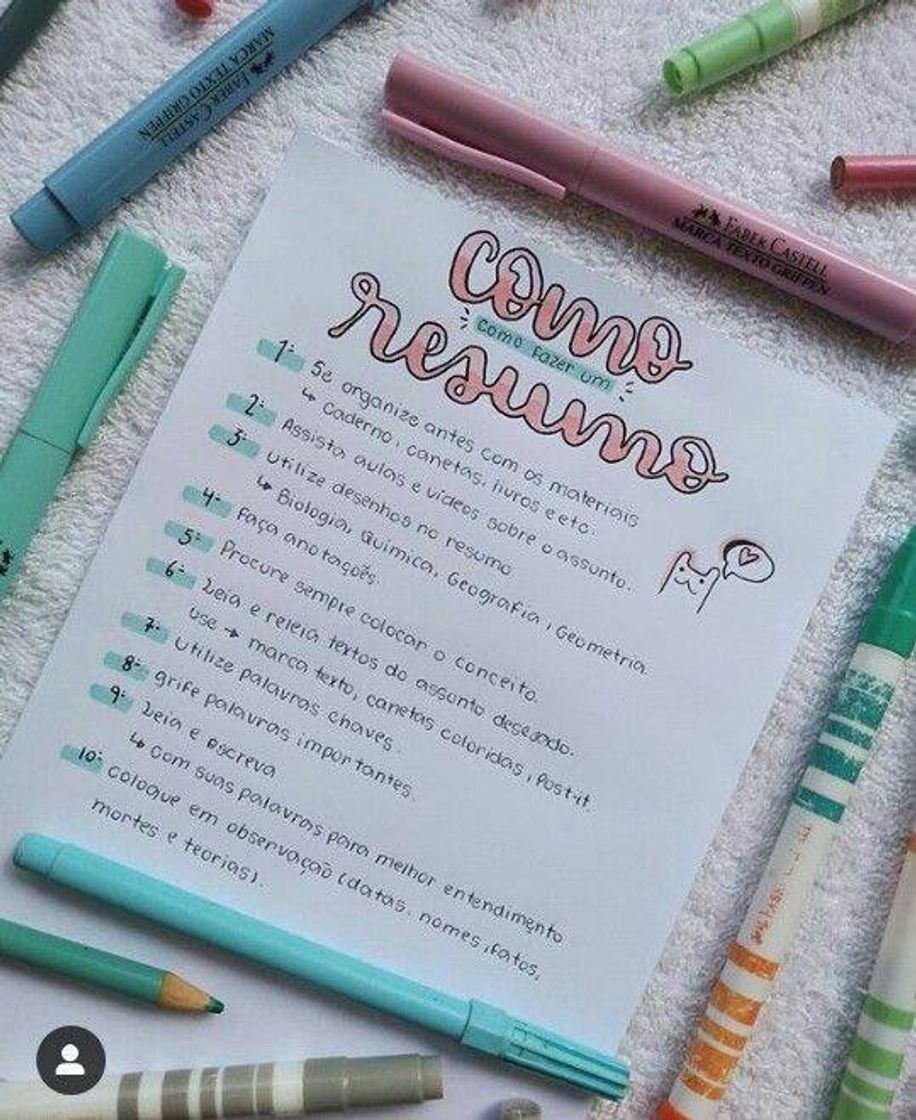 FABER CASTELL
MARCA TEXTO GRIFFEN
FABER CASTELL
MARCA TEXTO GRIFFEN
Como
como fazer um
resumo
1- Se organize antes com os materiais
↳ Caderno, canetas, livros e etc.
2- Assista aulas e vídeos sobre o assunto.
3- utilize desenhos no resumo
↳ Biologia, Química, Geografia, Geometria.
4- Faça anotações
5- Procure sempre colocar o conceito.
6- Leia e releia textos do assunto desejado.
use → marca texto, canetas coloridas, Post-it
7- Utilize palavras chaves.
8- grife palavras importantes.
9- Leia e escreva
↳ com suas palavras para melhor entendimento
10- coloque em observação (datas, nomes, fatos,
mortes e teorias).